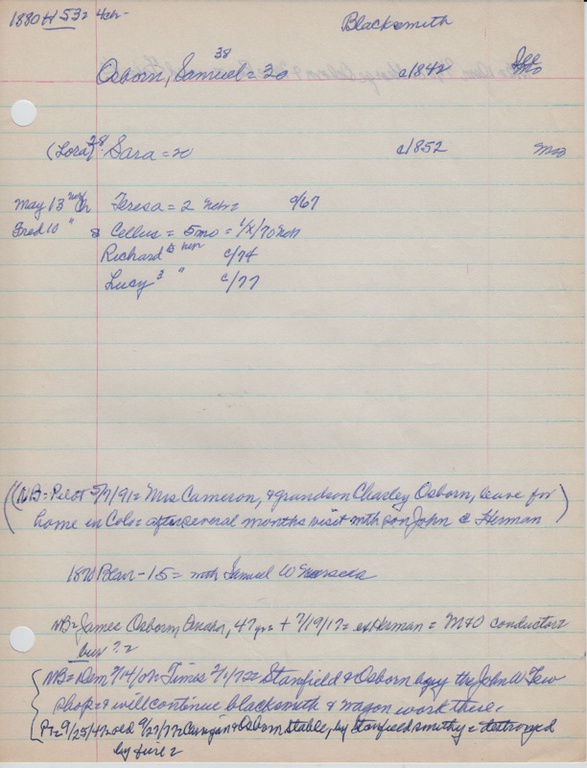 1880 H 53= 4ch- Blacksmith
38
Osborn, Samuel = 30 c/1842
(Lora) 28 Sara = 20 c/1852
May 13 Teresa = 2 9/67
Fred 10 " & Cellus = 5mo =
Richard c/74
Lucy 3 " c/77
((NB = Pilot 5/7/91 = Mrs Cameron, & grandson Charley Osborn, leave for
home in Colo = after several months visit with son John @ Herman)
Blair - 15 = with Samuel W
NB = James Osborn 47 yrs + 7/19/17 = exHerman = M&O conductor
bur ? =
NB = Dem Times Stanfield & Osborn buy the John W Few
shop = & will continue blacksmith & wagon work there.
9/25/47 & Osborn Stable, by Stanfield smithy = destroyed
by fire =